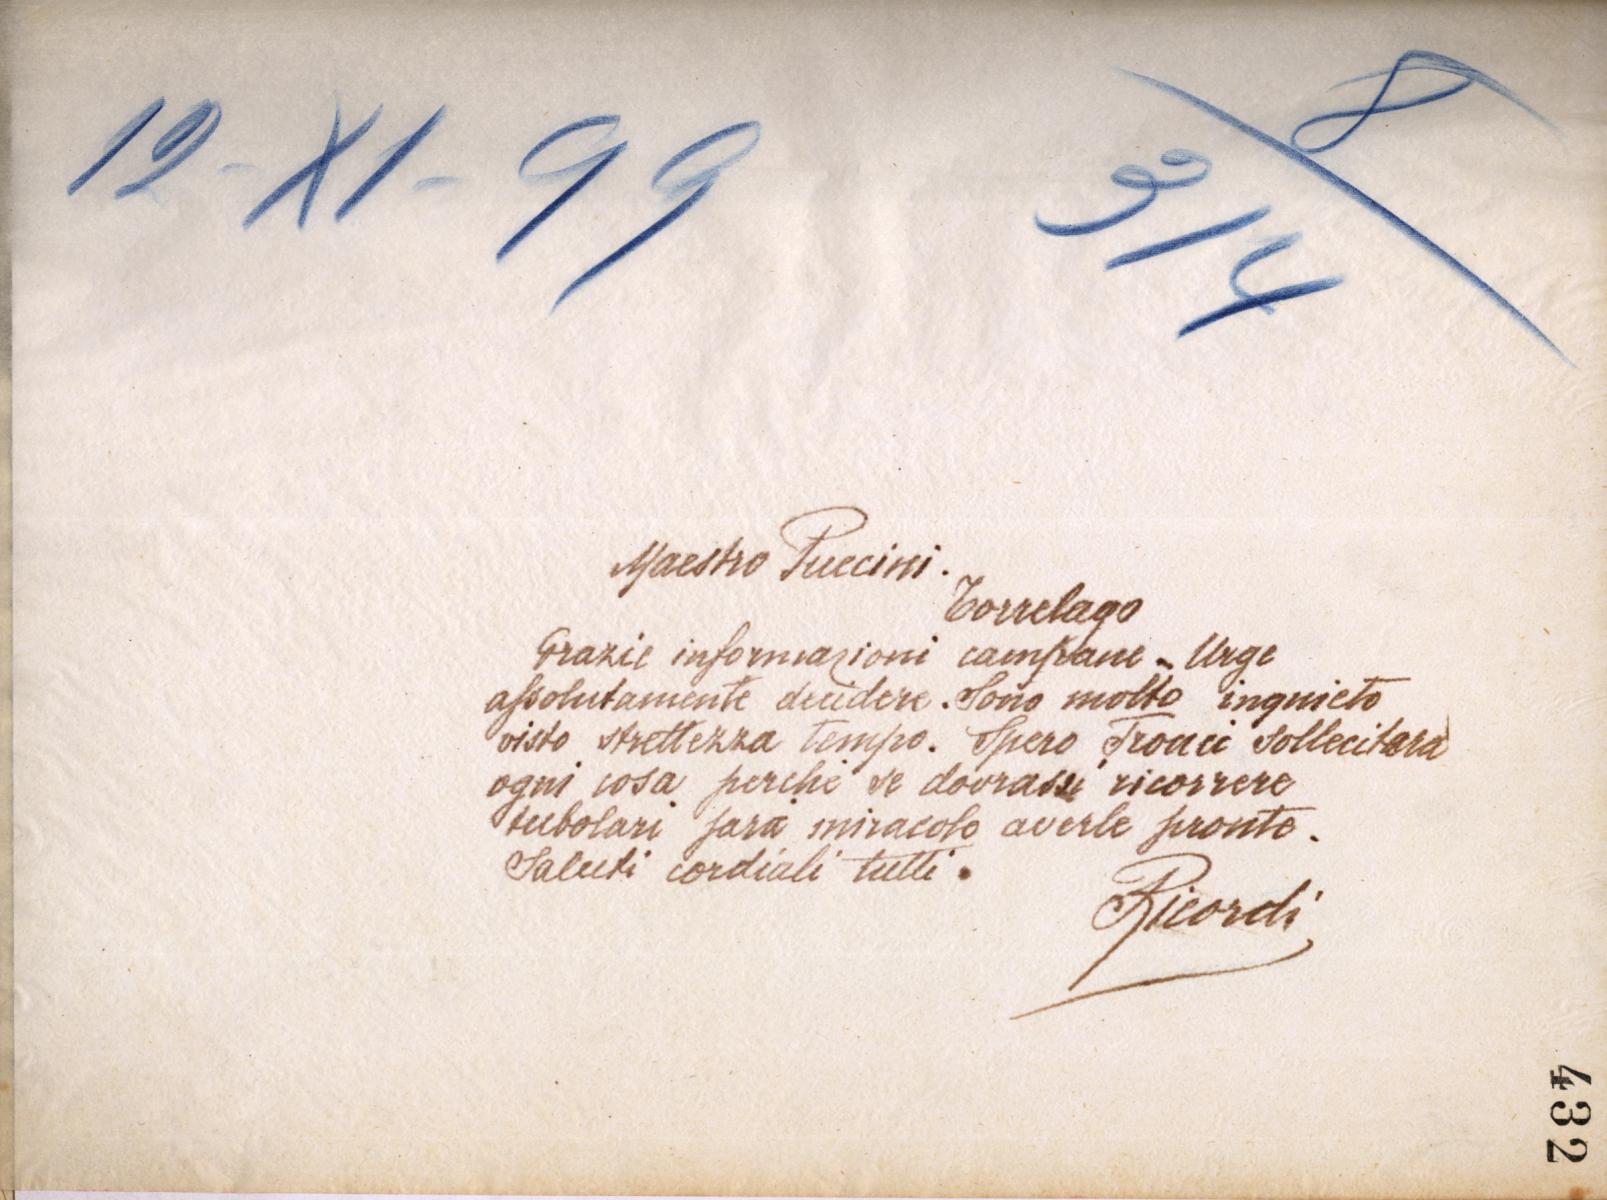 12-XI-99
8
3/4
Maestro Puccini.
Torrelago
Grazie informazioni campane - Urge
assolutamente decidere. Sono molto inquieto
visto strettezza tempo. Spero Tronci solleciterà
ogni cosa perchè se dovrassi ricorrere
tubolari sarà miracolo averle pronte.
Saluti cordiali tutti.
Ricordi
432